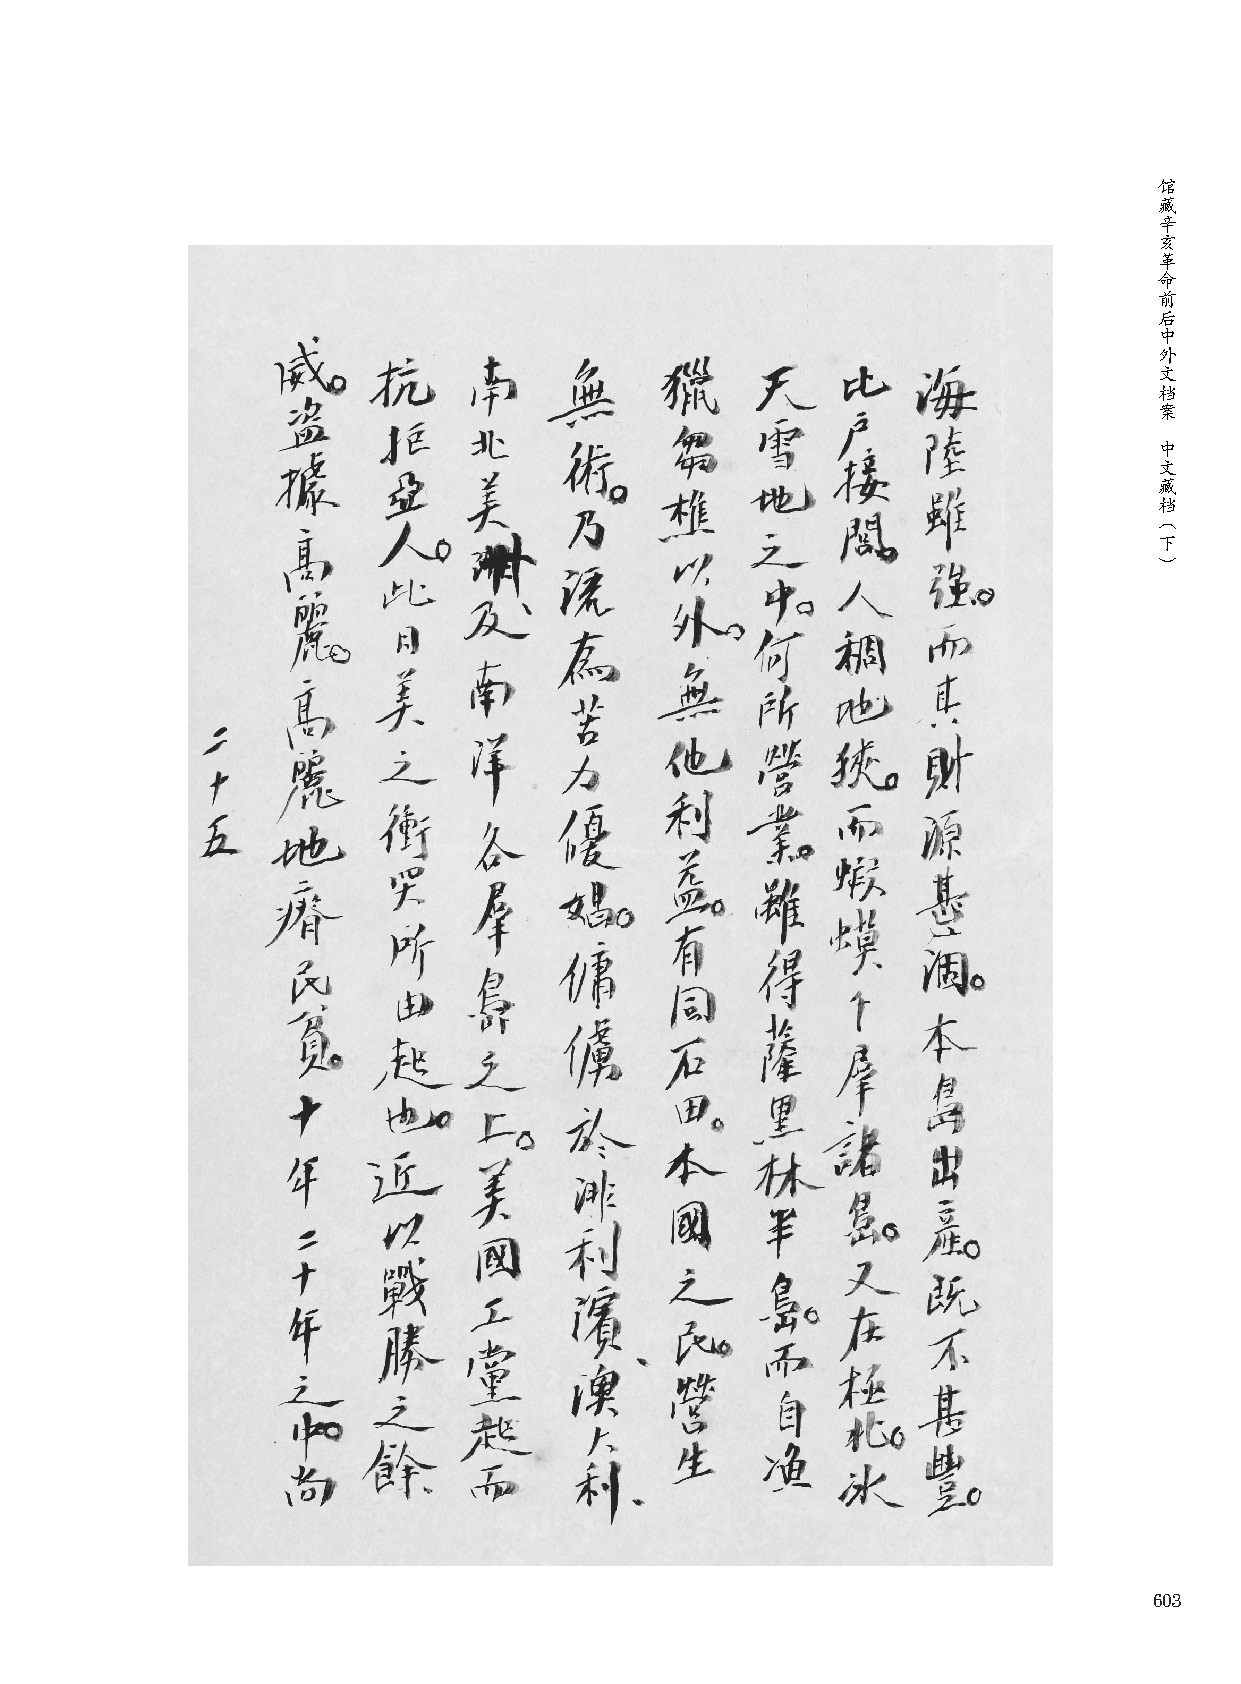 馆藏辛亥革命前后中外文档案 中文藏档（下）
海陸雖强。而其財源甚涸。本島出產。既不甚豐。
比户接閭。人稠地狹。而蝦蟆个羣諸島。又在極北。冰
天雪地之中。何所營業。雖得薩黑林半島。而自漁
獵芻樵以外。無他利益。有同石田。本國之民。營生
無術。乃流為苦力優娼。傭僕於非利濱、澳大利、
南北美洲及、南洋各羣島之上。美國工黨起而
抗拒亞人。此日美之衝突所由起也。近以戰勝之餘
威。盜據高麗。高麗地瘠民貧。十年二十年之中。尚
二十五
603